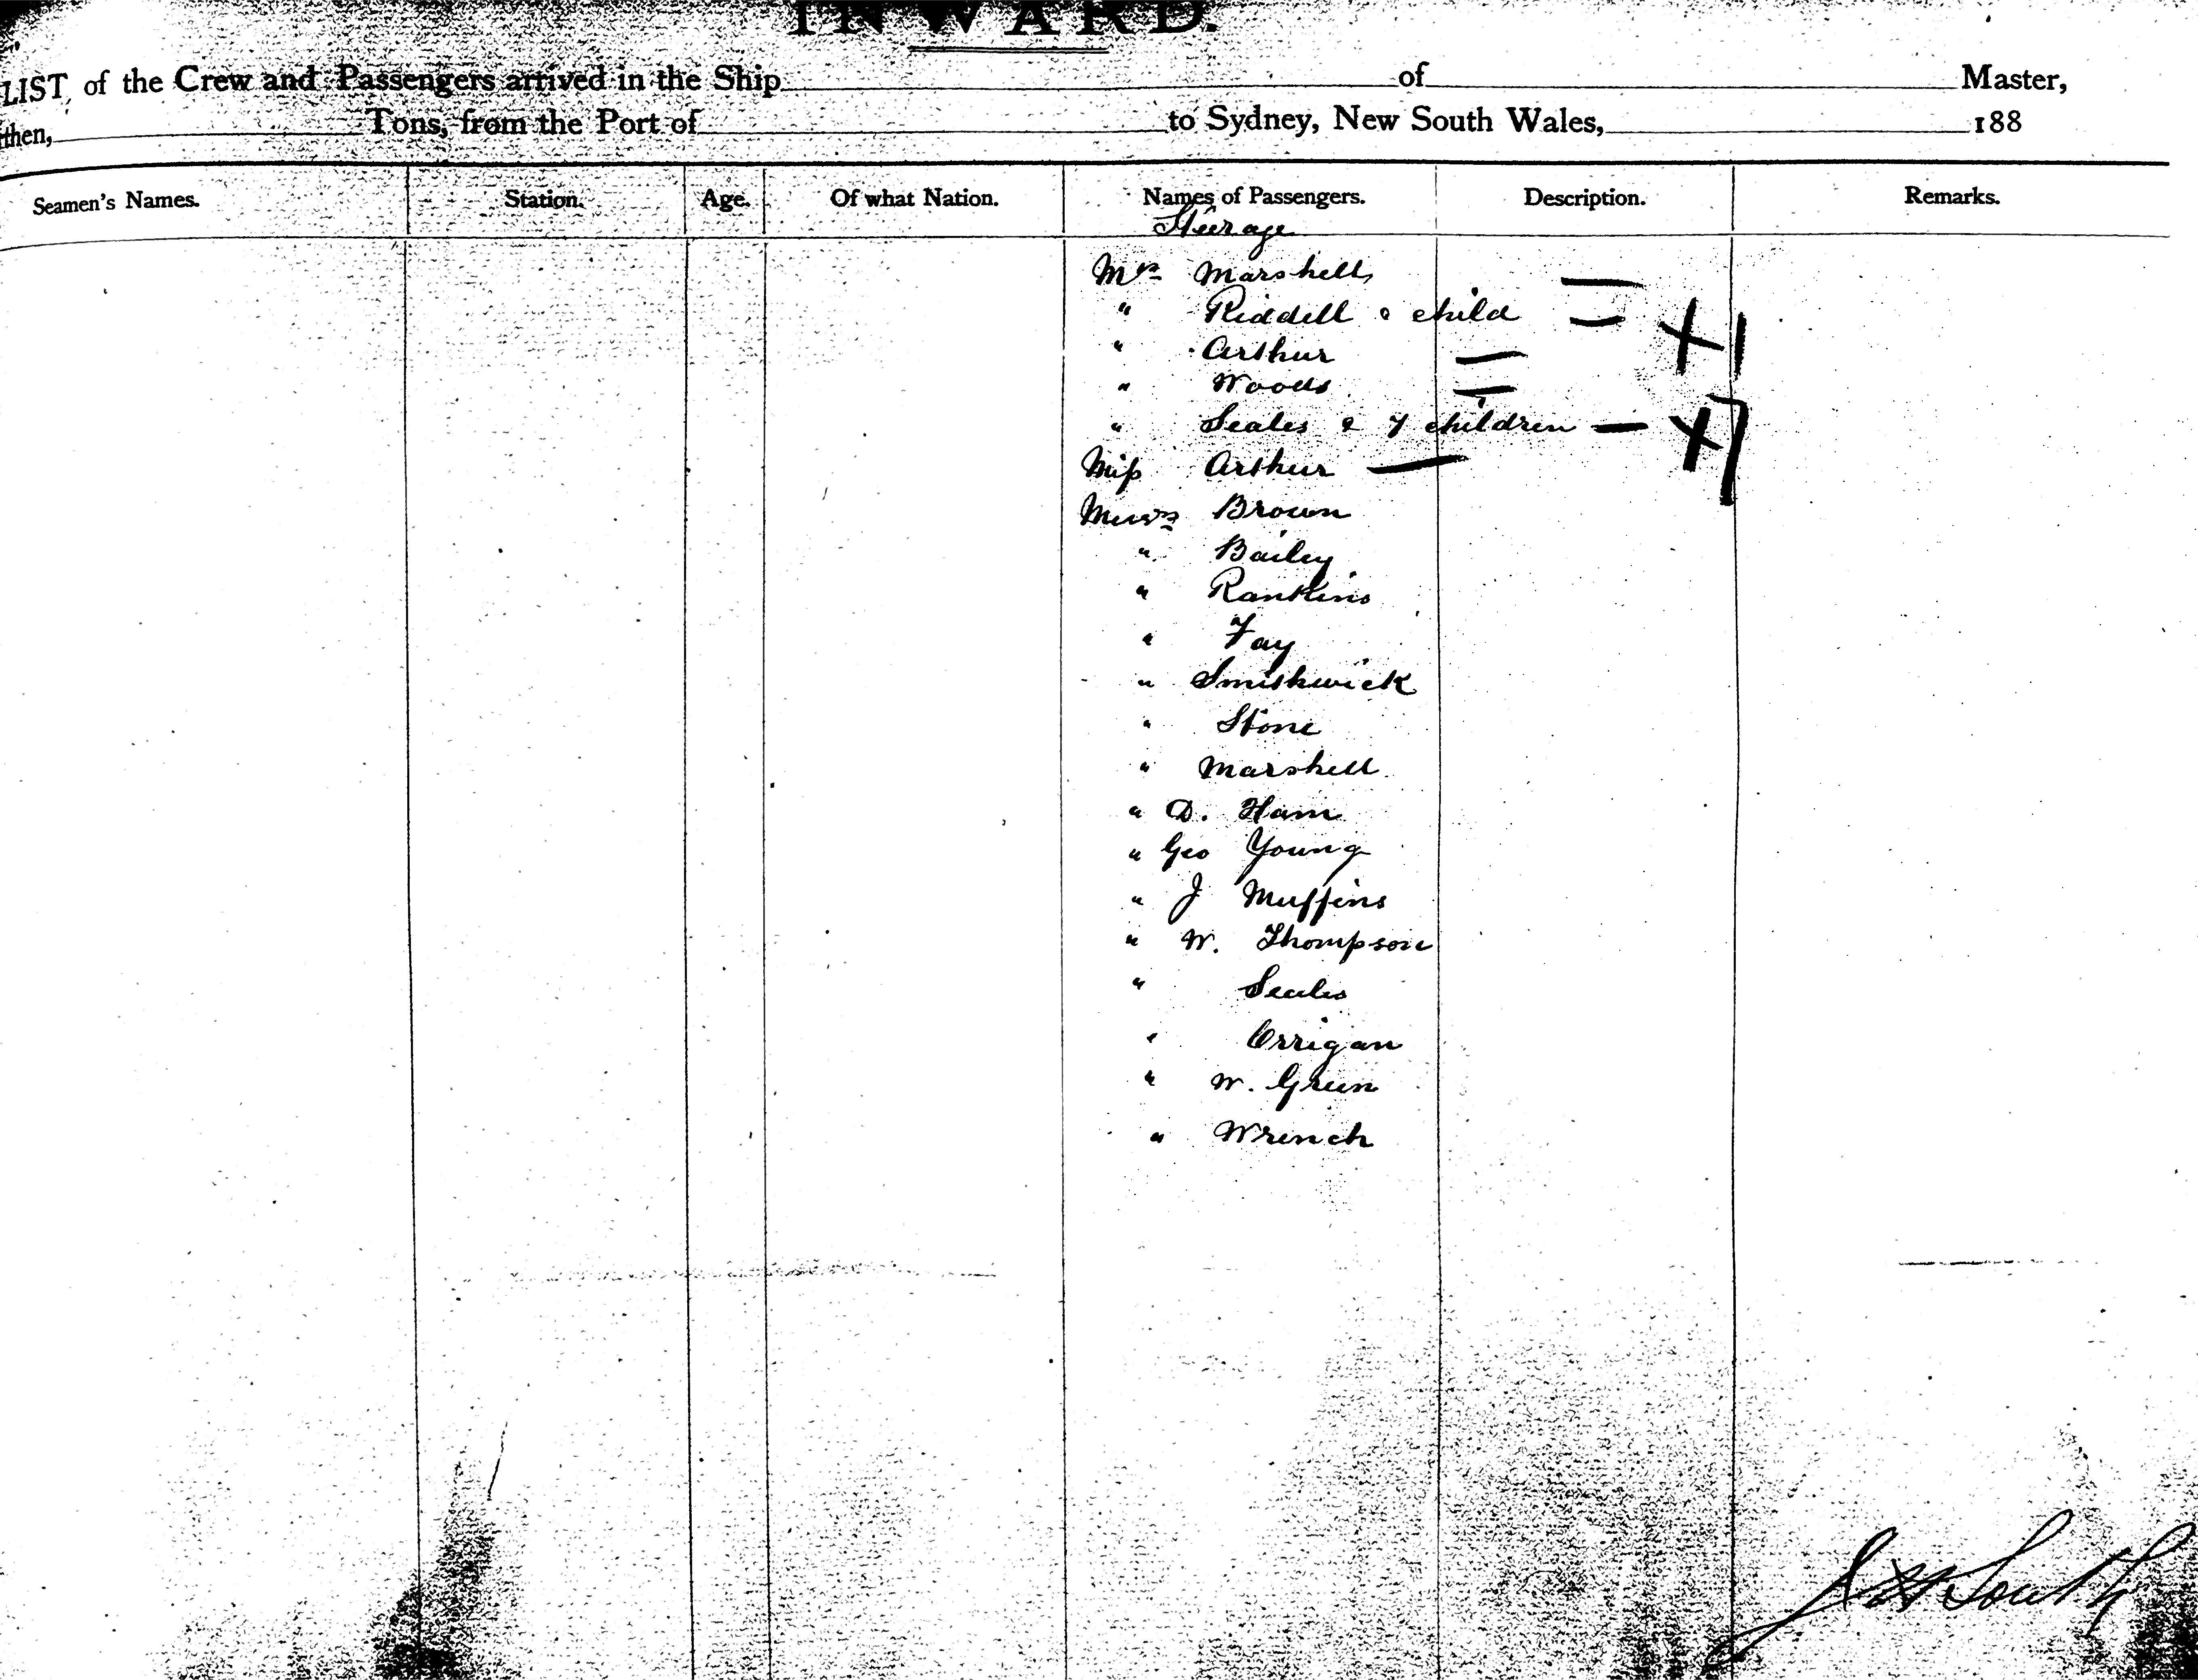 INWARD.
LIST of the Crew and Passengers arrived in the Ship of Master,
then, Tons, from the Port of to Sydney, New South Wales, 188
Seamen's Names. Station. Age. Of what Nation. Names of Passengers. Description. Remarks.
Steerage
Mrs Marshell —
" Riddell & child — +1
" Arthur —
" Woods —
" Seales & 7 children — +7
Miss Arthur —
Messrs Brown
" Bailey
" Rankins
" Fay
" Smithwick
" Stone
" Marshell
" D. Ham
" Geo Young
" J Muffins
" W. Thompson
" Seales
" Orrigan
" W. Green
" Wrench
South